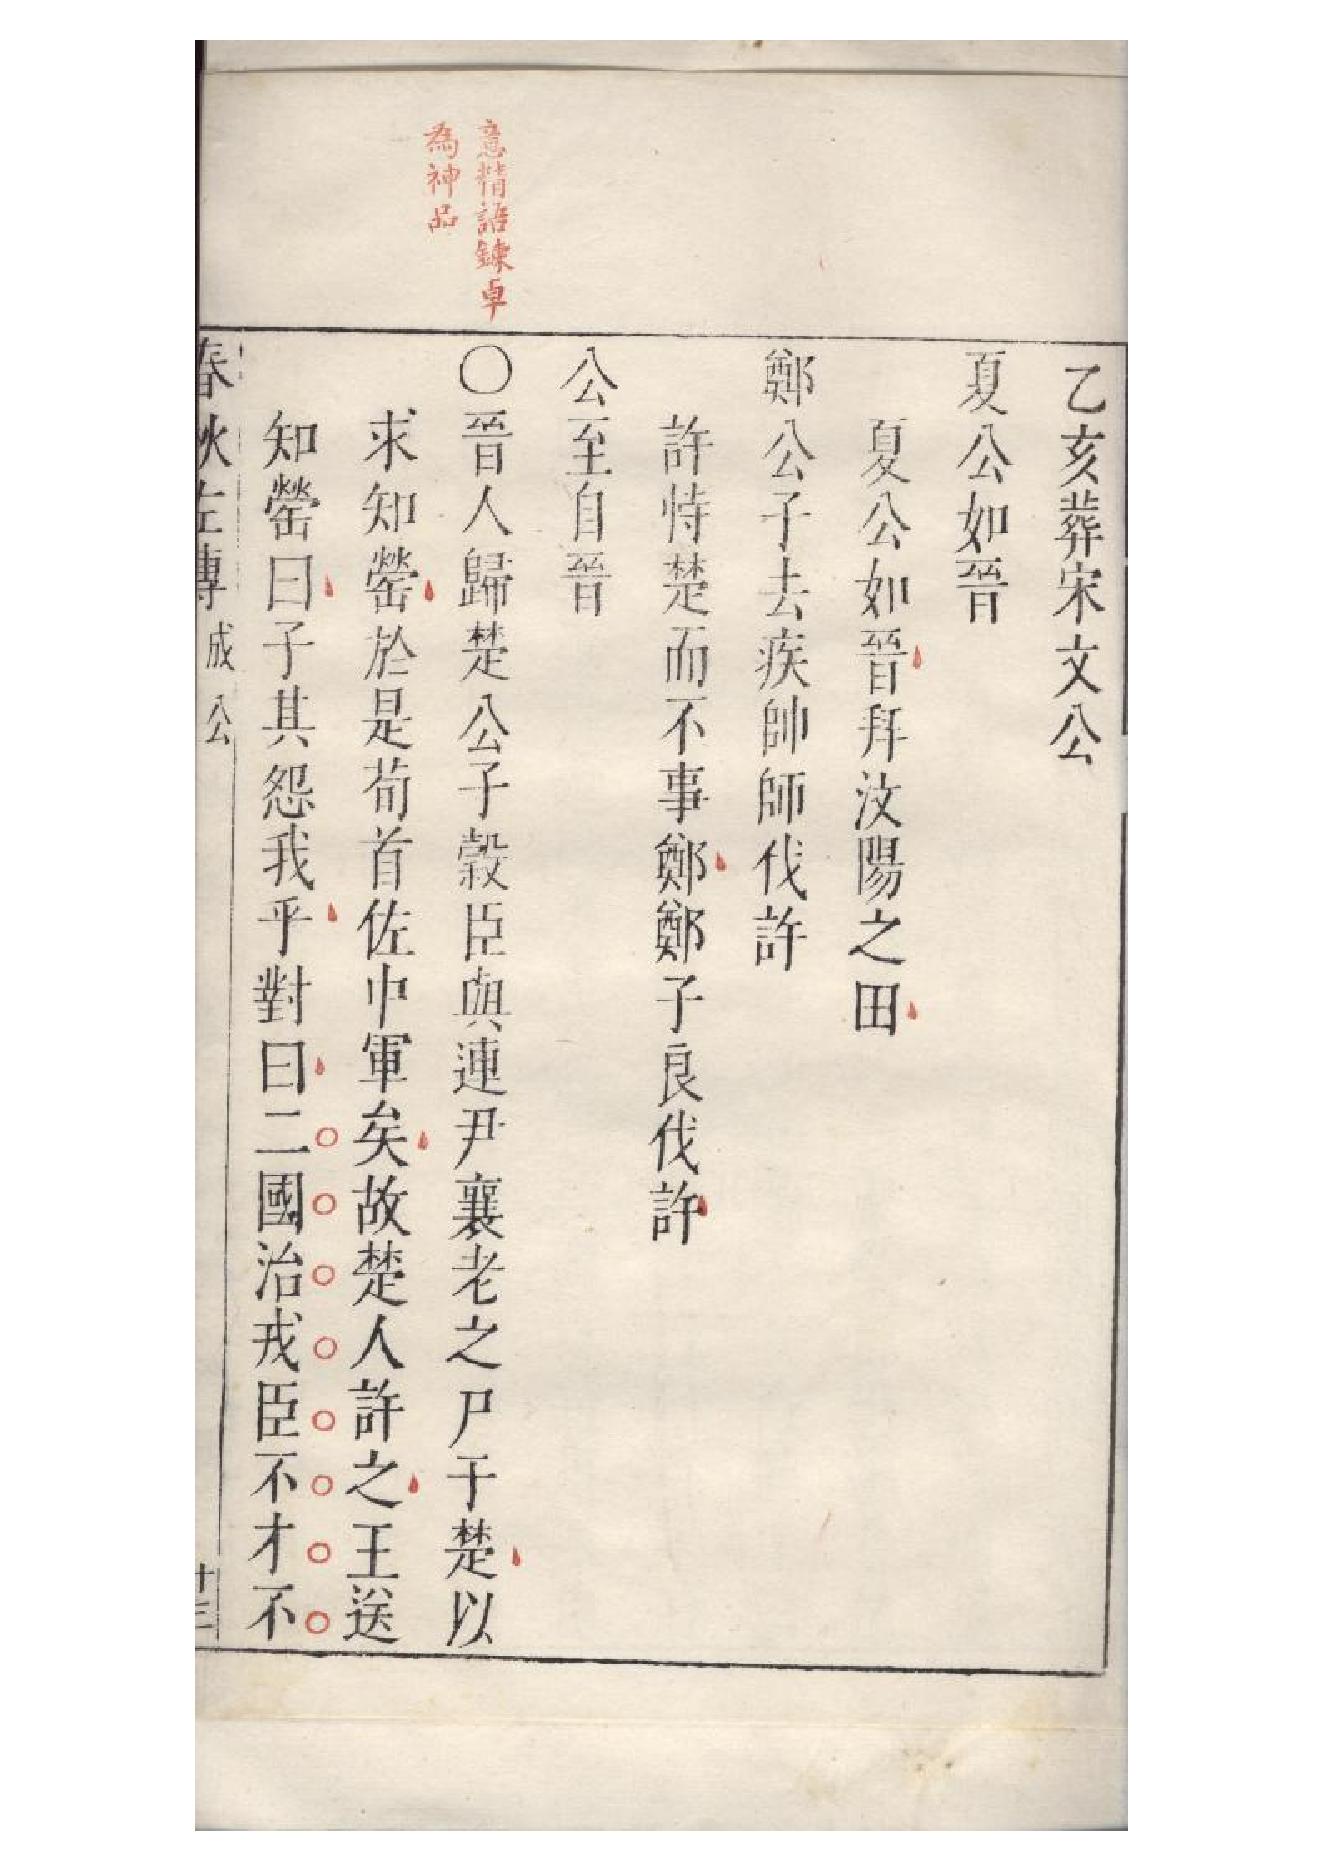 意精語鍊卓
為神品
乙亥葬宋文公
夏公如晉
夏公如晉拜汶陽之田
鄭公子去疾帥師伐許
許恃楚而不事鄭鄭子良伐許
公至自晉
〇晉人歸楚公子穀臣與連尹襄老之尸于楚以
求知罃於是荀首佐中軍矣故楚人許之王送
知罃曰子其怨我乎對曰二國治戎臣不才不
春秋左傳 成公 十三